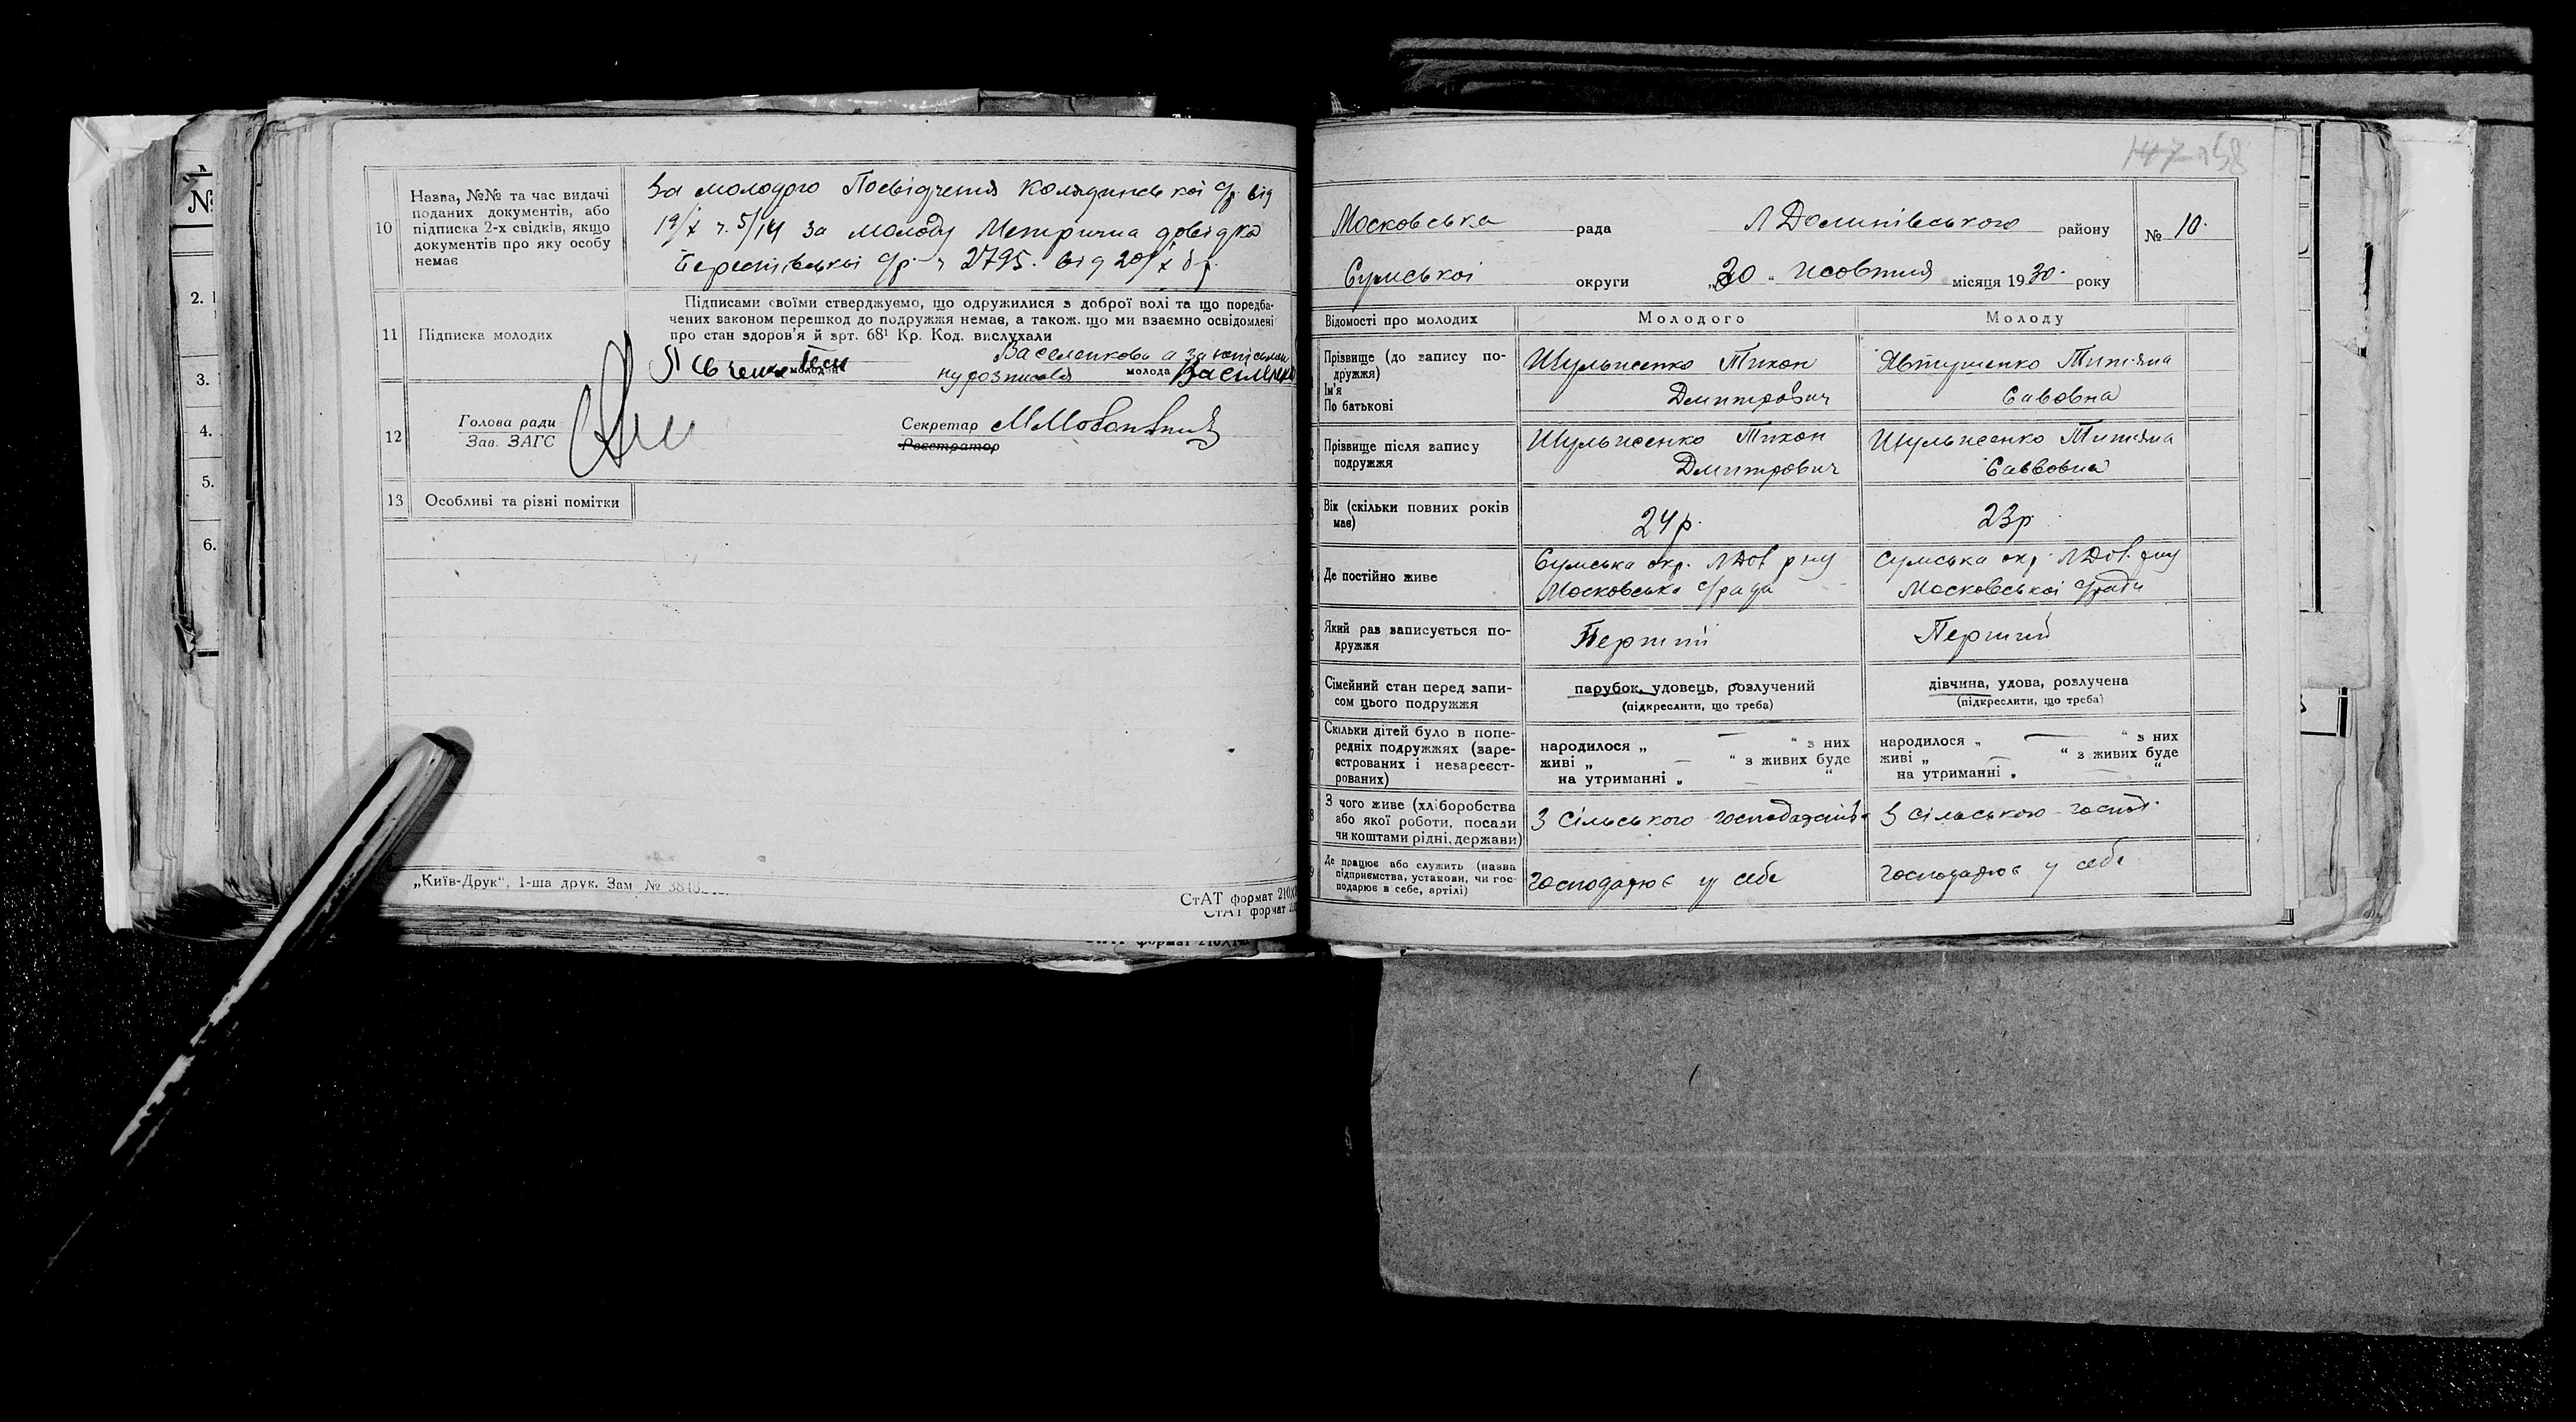 №
2.
3.
4.
5.
6.
10
Назва, №№ та час видачі
поданих документів, або
підписка 2-х свідків, якщо
документів про яку особу
немає
За молодого Посвідчення Колядинської с/р. від
19/X ч. 5/14 за молоду Метрична довідка
Берестівської с/р. ч 2795. від 20/X б р.
11
Підписка молодих
Підписами своїми стверджуємо, що одружилися з доброї волі та що поредба-
чених законом перешкод до подружжя немає, а також, що ми взаємно освідомлені
про стан здоров'я й арт. 68¹ Кр. Код. вислухали
Василенкова а за неписьмен
молодий
ну розписався молода Василенко
12
Голова ради
Зав. ЗАГС
Секретар
Реєстратор
13
Особливі та різні помітки
„Київ-Друк“, 1-ша друк. Зам № 3818
СтАТ формат 210Х
СтАТ формат
формат 210Х1
147 158
Московська рада Л Долинівського району
№ 10.
Сумської округи „30“ жовтня місяця 1930. року
Відомості про молодих
Молодого
Молоду
Прізвище (до запису по-
дружжя)
Ім'я
По батькові
Шульженко Тихон
Дмитрович
Явтушенко Титяна
Савовна
Прізвище після запису
подружжя
Шульженко Тихон
Дмитрович
Шульженко Титяна
Саввовна
Вік (скільки повних років
має)
24 р.
23 р
Де постійно живе
Сумська окр. Л Дол р ну
Московська с/рада
Сумська окр Л Дол. рну
Московської с/ради
Який раз записується по-
дружжя
Перший
Перший
Сімейний стан перед запи-
сом цього подружжя
парубок, удовець, розлучений
(підкреслити, що треба)
дівчина, удова, розлучена
(підкреслити, що треба)
Скільки дітей було в попе-
редніх подружжях (заре-
єстрованих і незареєст-
рованих)
народилося „ — “ з них
живі „ — “ з живих буде
на утриманні „ — “
народилося „ — “ з них
живі „ — “ з живих буде
на утриманні „ — “
З чого живе (хліборобства
або якої роботи, посади
чи коштами рідні, держави)
З сільського господарств.
З сільського господ.
Де працює або служить (назва
підприємства, установи, чи гос-
подарює в себе, артілі)
господарює у себе
господарює у себе